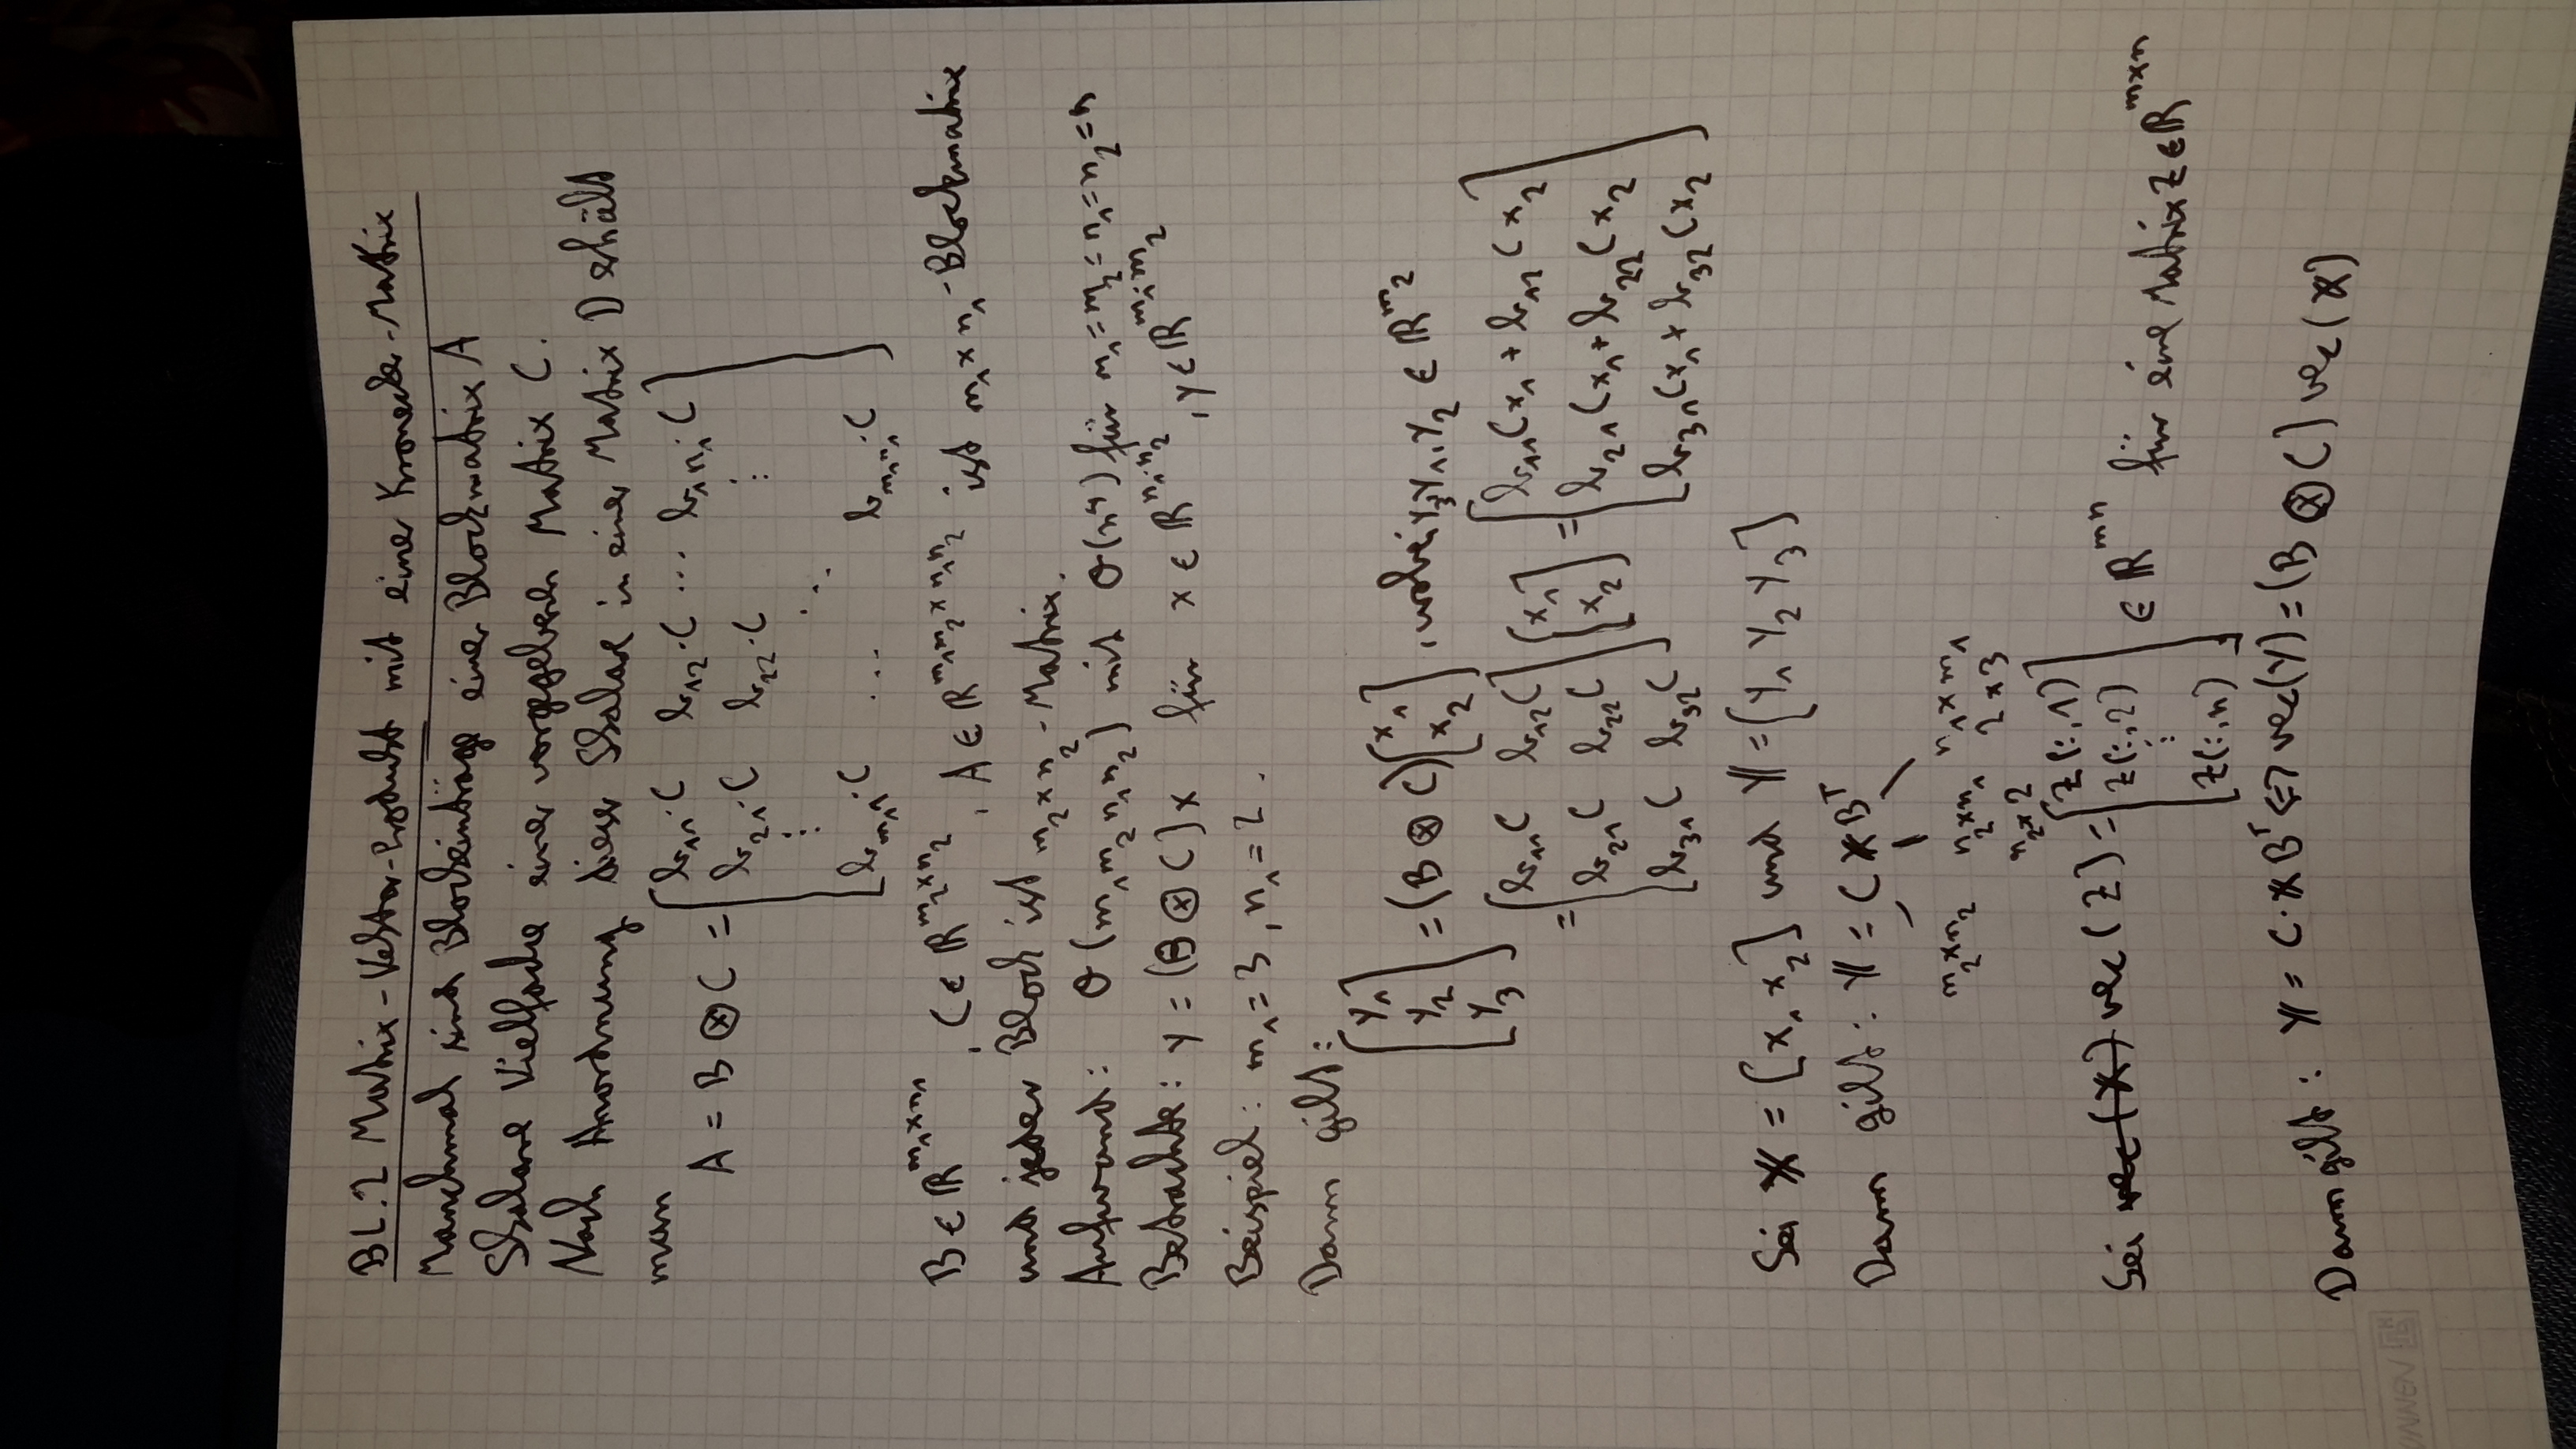 BL.2 Matrix-Vektor-Produkt mit einer Kronecker-Matrix
Manchmal sind Blockeinträge einer Blockmatrix A
Skalare Vielfache einer vorgegebenen Matrix C.
Nach Anordnung dieser Skalare in einer Matrix D erhält
man
A = B ⊗ C = [ b₁₁·C b₁₂·C ... b₁n₁·C
b₂₁·C b₂₂·C ⋮
⋮ ⋱
bm₁1·C ... bm₁n₁·C ]
B ∈ ℝ^(m₁×n₁), C ∈ ℝ^(m₂×n₂), A ∈ ℝ^(m₁m₂×n₁n₂) ist m₁×n₁-Blockmatrix
und jeder Block ist m₂×n₂-Matrix.
Aufwand: O(m₁m₂n₁n₂) mit O(n⁴) für m₁=m₂=n₁=n₂=n
Betrachte: y = (B ⊗ C)x für x ∈ ℝ^(n₁·n₂), y ∈ ℝ^(m₁·m₂)
Beispiel: m₁=3, n₁=2.
Dann gilt:
[y₁ y₂ y₃] = (B ⊗ C)[x₁ x₂], wobei y₃,y₁,y₂ ∈ ℝ^(m₂)
= [ b₁₁C b₁₂C [x₁ = [ b₁₁Cx₁ + b₁₂Cx₂
b₂₁C b₂₂C x₂] b₂₁Cx₁ + b₂₂Cx₂
b₃₁C b₃₂C ] b₃₁Cx₁ + b₃₂Cx₂ ]
Sei X = [x₁ x₂] und Y = [y₁ y₂ y₃]
Dann gilt: Y = C X Bᵀ
m₂×n₂ n₂×n₁ n₁×m₁
n₂×2 2×3
Sei vec(X) vec(Z) = [ Z(:,1)
Z(:,2)
⋮
Z(:,n) ] ∈ ℝ^(mn) für eine Matrix Z ∈ ℝ^(m×n)
Dann gilt: Y = C·X Bᵀ ⇔ vec(Y) = (B ⊗ C) vec(X)